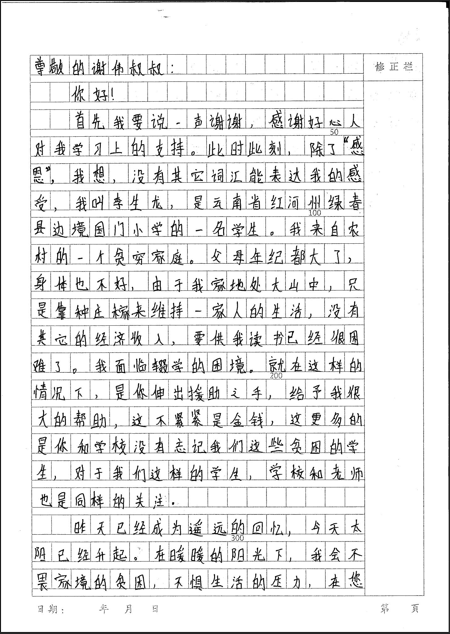 尊敬的谢伟叔叔：
修正栏
你好！
首先我要说一声谢谢，感谢好心人
50
对我学习上的支持。此时此刻，除了“感
恩”，我想，没有其它词汇能表达我的感
受，我叫李生龙，是云南省红河州绿春
100
县边境国门小学的一名学生。我来自农
村的一个贫穷家庭。父母年纪都大了，
身体也不好，由于我家地处大山中，只
是靠种庄稼来维持一家人的生活，没有
其它的经济收入，要供我读书已经很困
难了。我面临辍学的困境。就在这样的
200
情况下，是你伸出援助之手，给予我很
大的帮助，这不紧紧是金钱，这更多的
是你和学校没有忘记我们这些贫困的学
生，对于我们这样的学生，学校和老师
也是同样的关注。
昨天已经成为遥远的回忆，今天太
300
阳已经升起。在暖暖的阳光下，我会不
畏家境的贫困，不惧生活的压力，在您
日期： 年 月 日 第 页